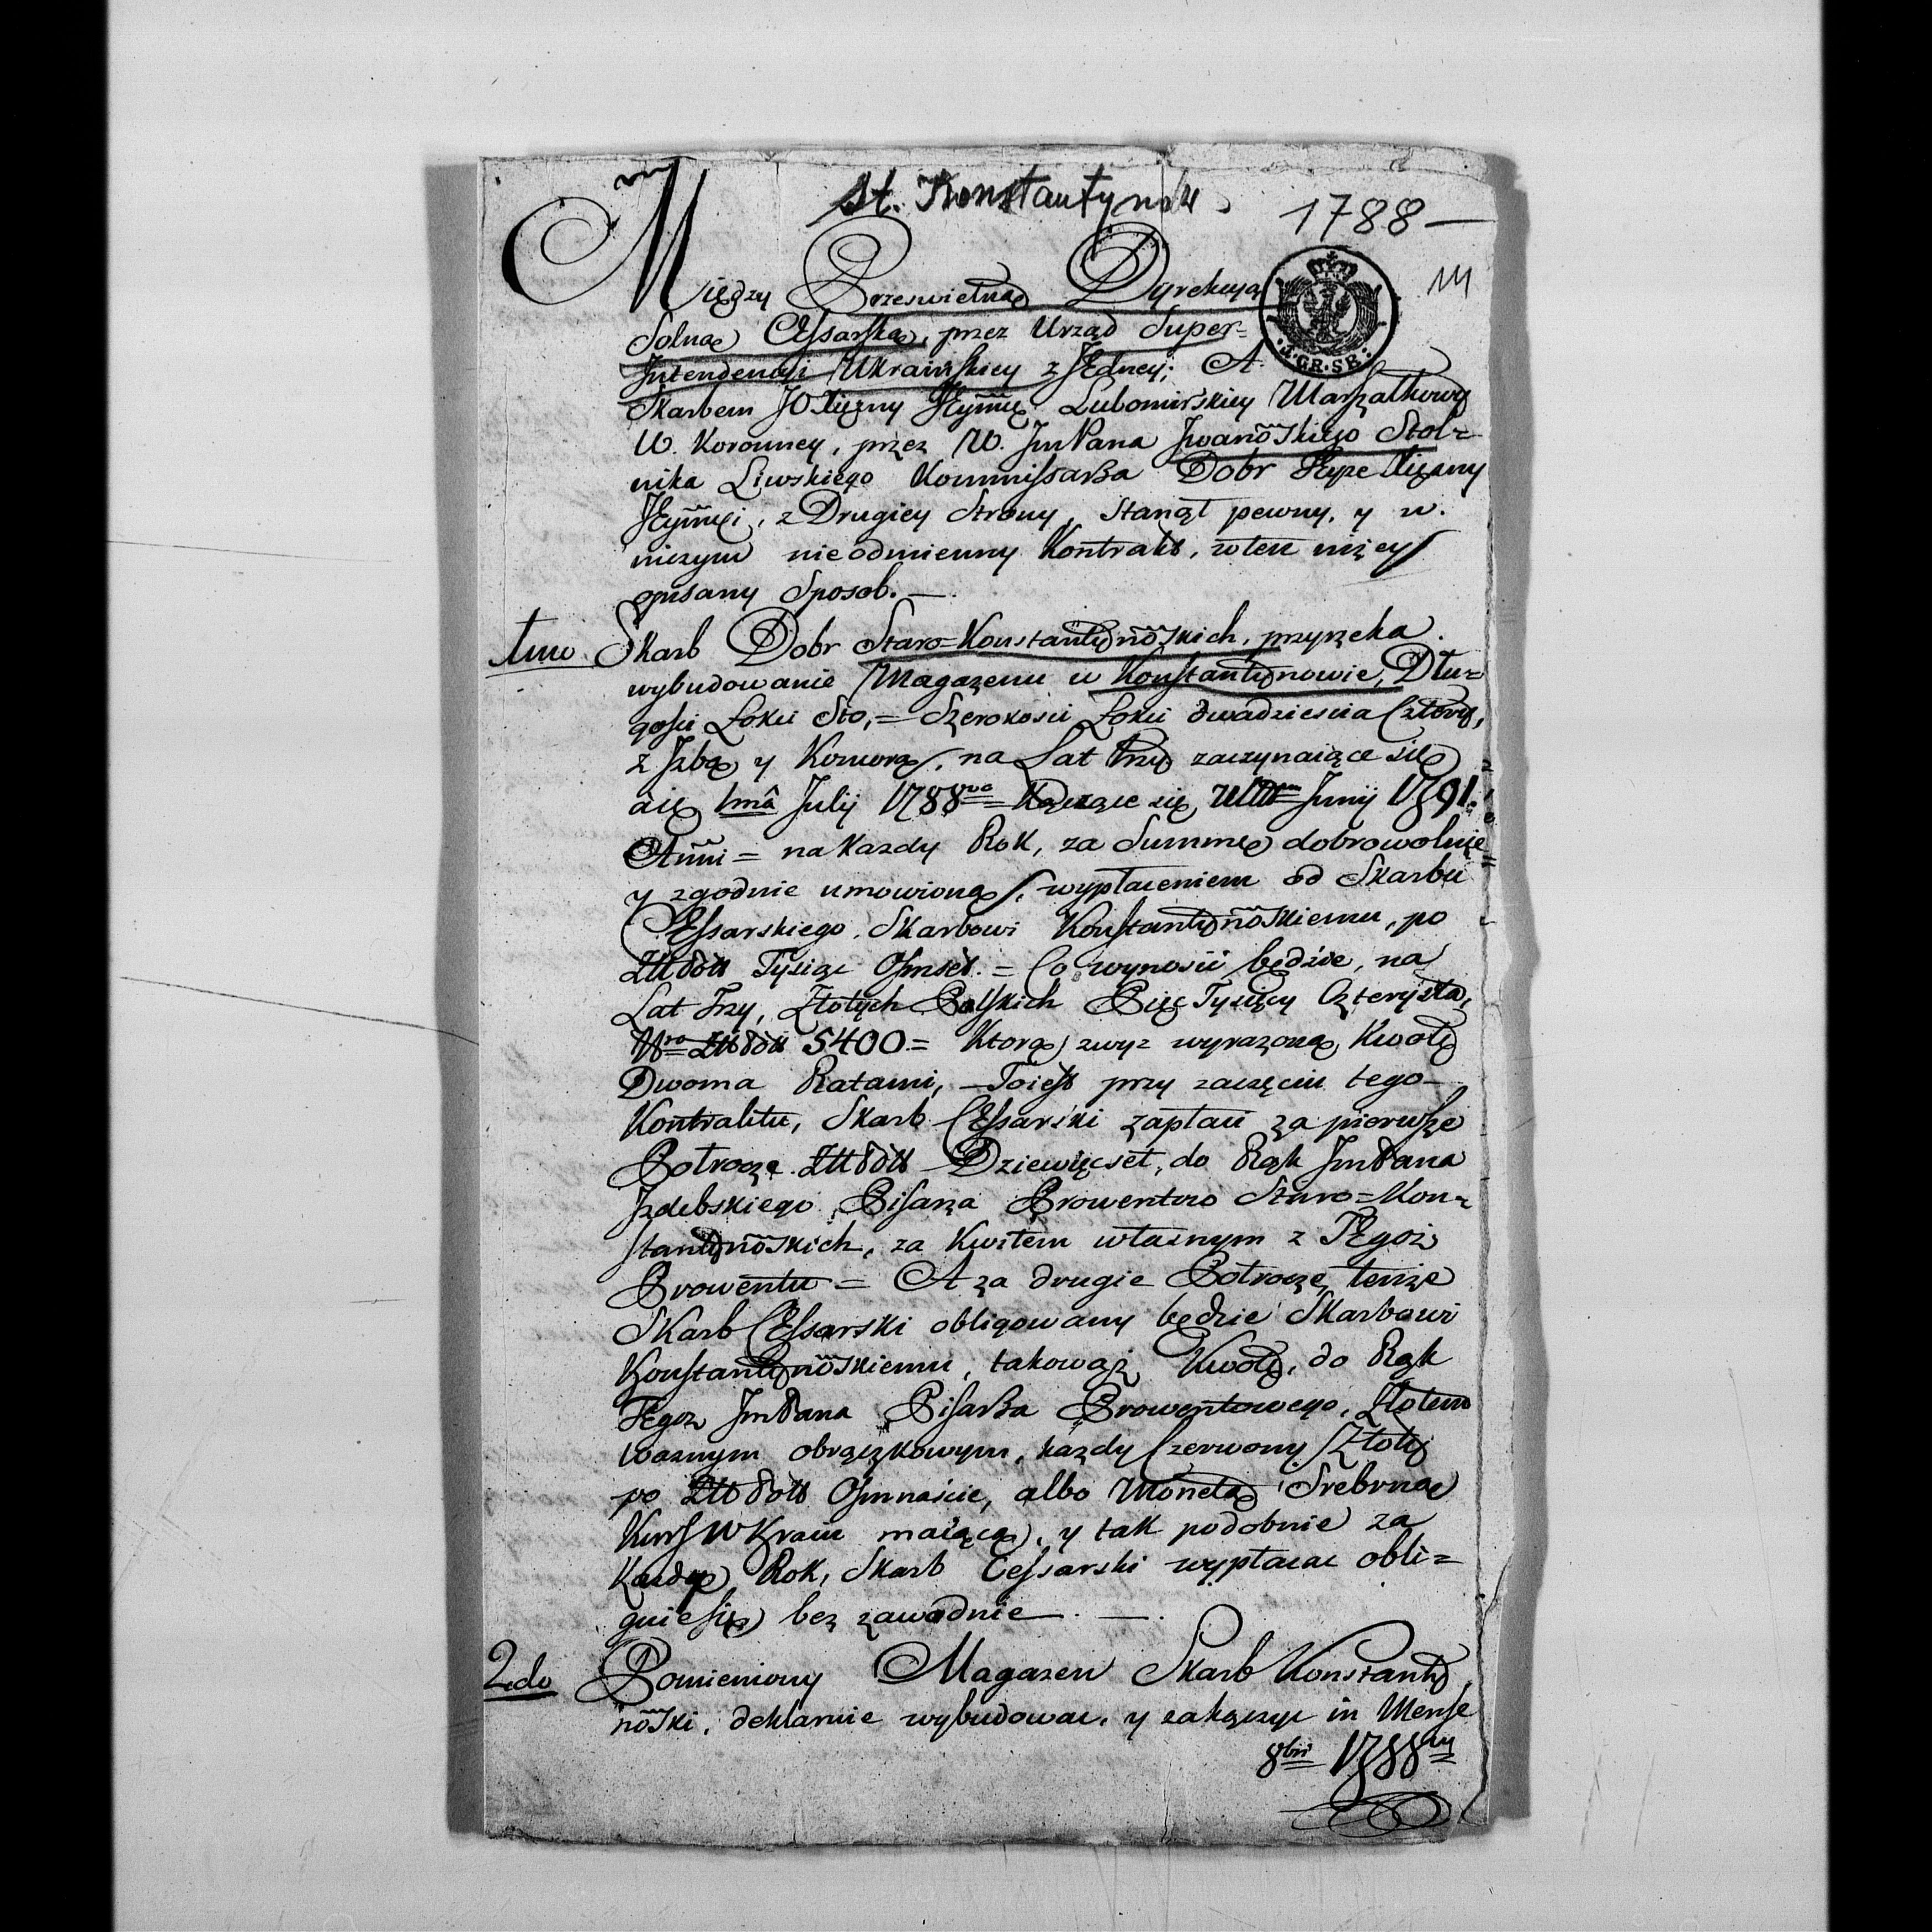 St. Konstantynów
1788 —
Między Przeswietną Dyrekcyą
Solną Cessarską, przez Urząd Super=
Intendencyi Ukrainskiey z Jedney; A
4.GR.SR.
Skarbem JO Xiężny Jeymci Lubomirskiey Marszałkowy
W. Koronney, przez W. JmPana Iwanoskiego Stol=
nika Liwskiego Kommissarza Dobr Teyże Xiężny
Jeymci, z Drugiey Strony, Stanął pewny, y w
niczym nieodmienny Kontrakt, wten niżey
opisany Sposob. —
1mo Skarb Dobr Staro=Konstantynoskich, przyrzeka
wybudowanie Magazenu w Konstantynowie, Dłu=
gości Łokci Sto, = Szerokosci Łokci dwadziescia Cztery,
z Izbą y Komorą, na Lat trzy zaczynaiące się
a 1mâ Julij 1788vo = Kączące się Ultm Junij 1791.
Anni = na Kazdy Rok, za Summę dobrowolnie
y zgodnie umowioną, wypłaceniem od Skarbu
Cessarskiego Skarbowi Konstantynoskiemu, po
Złł Poll Tysiąc Osmset. = Co wynosić będzie, na
Lat Trzy, Złotych Polskich Pięć Tysięcy Czterysta,
Nro Złł Poll 5400 = Ktorą zwyż wyrazoną Kwotę
Dwoma Ratami, — Toiest przy zaczęciu tego
Kontraktu, Skarb Cessarski zapłaci za pierwsze
Potrocze Złł Poll Dziewięcset, do Rąk JmPana
Izdebskiego Pisarza Prowentow Staro=Kon=
stantynoskich, za Kwitem własnym z Tegoż
Prowentu = A za drugie Potrocze, tenże
Skarb Cessarski obligowany będzie Skarbowi
Konstantynoskiemu, takowąż Kwotę, do Rąk
Tegoż JmPana Pisarza Prowentowego, Złotem
waznym obrączkowym, kazdy Czerwony Złoty
po Złł Poll Osmnaście, albo Monetą Srebrną
Kurs W Kraiu maiącą, y tak podobnie za
Kazdy Rok, Skarb Cessarski wypłacac obli=
guie się bez zawodnie —. —.
2do Pomieniony Magazen Skarb Konstanty
noski, deklaruie wybudowac, y zakączyc in Mense
8bri 1788